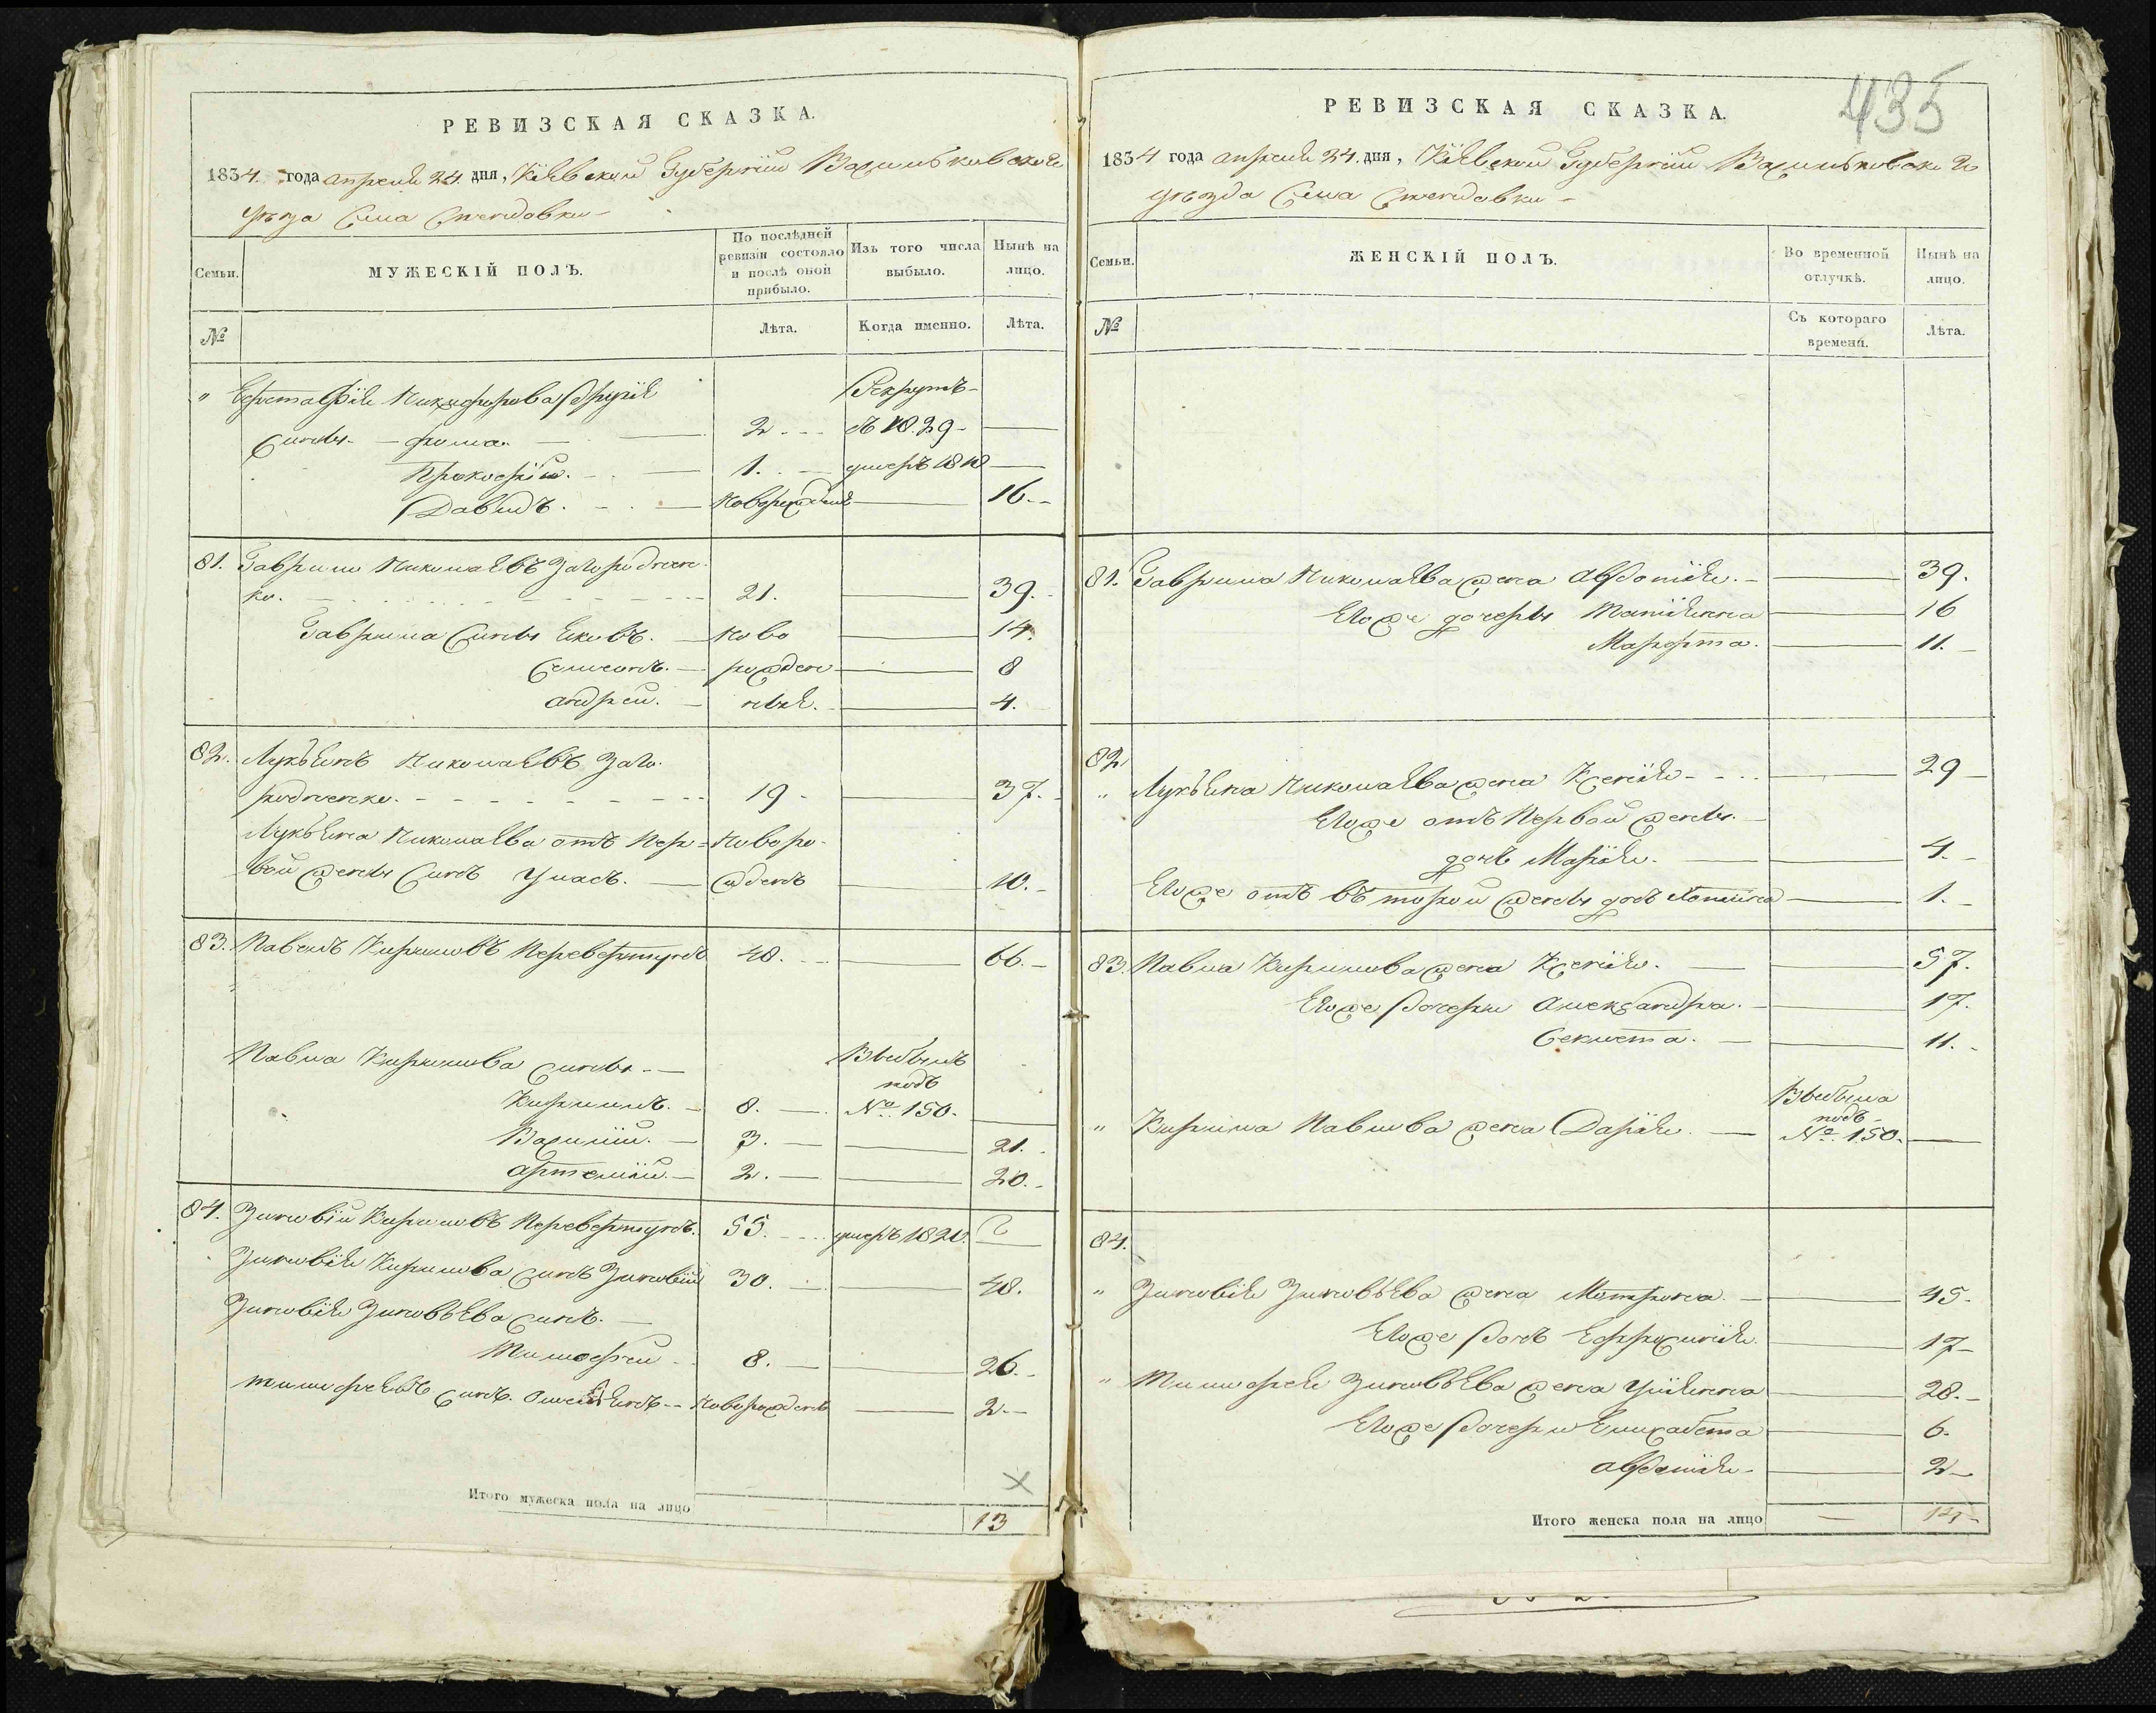 РЕВИЗСКАЯ СКАЗКА.
1834. года апреля 24. дня, Кіевской Губерніи Васильковского
уезда Села
Семьи.
МУЖЕСКІЙ ПОЛЪ.
По послѣдней ревизіи состояло и послѣ оной прибыло.
Изъ того числа выбыло.
Нынѣ на лицо.
№
Лѣта.
Когда именно.
Лѣта.
" Евстафія Никифорова другія
сыны - фома. 2 Рекрутъ въ 1829
Прокофій. 1. умеръ 1818
Давидъ. Новорожденъ 16.
81. Гаврило Николаевъ Загороднен
ко. 21. 39.
Гаврила Сыны Яковъ. Ново 14.
Семенъ. рожден 8
андрей. ныя. 4.
82. Лукьянъ Николаевъ Заго
родненко. 19 37.
Лукьяна Николаева отъ Пер= Новоро-
вой жены Сынъ Уласъ. жденъ 10.
83. Павелъ Кириловъ Перевертунъ 48. 66.
Павла Кирилова сыны
Кирилъ. 8. Выбылъ подъ № 150.
Василій. 3. 21.
артемій. 2. 20.
84. Зиновій Кириловъ Перевертунъ. 55. умеръ 1820.
Зиновія Кирилова сынъ Зиновій 30. 48.
Зиновія Зиновьева сынъ.
Тимофей 8. 26.
тимофеевъ сынъ. Новорожденъ 2
Итого мужеска пола на лицо 13
435
РЕВИЗСКАЯ СКАЗКА.
1834 года апреля 24. дня, Кіевской Губерніи Васильковского
уезда Села
Семьи.
ЖЕНСКІЙ ПОЛЪ.
Во временной отлучкѣ.
Нынѣ на лицо.
№
Съ котораго времени.
Лѣта.
81. Гаврила Николаева жена Авдотія. 39.
Егоже дочеры Татіянна 16
Марфта. 11.
82
" Лукьяна Николаева жена Ксенія 29
Егоже отъ Первой жены
дочь Марія. 4.
Егоже отъ въторой жены дочь 1.
83. Павла Кирилова жена Ксенія. 57.
Егоже Дочери Александра. 17.
Секлета. 11.
" Кирила Павлова жена Дарія. Выбыла подъ № 150.
84.
" Зиновія Зиновьева жена Мотрона. 45.
Егоже Дочь Ефросинія 17
" Тимофея Зиновьева жена Уліянна 28.
Егоже Дочери Елисавета 6.
авдотія 2
Итого женска пола на лицо 14